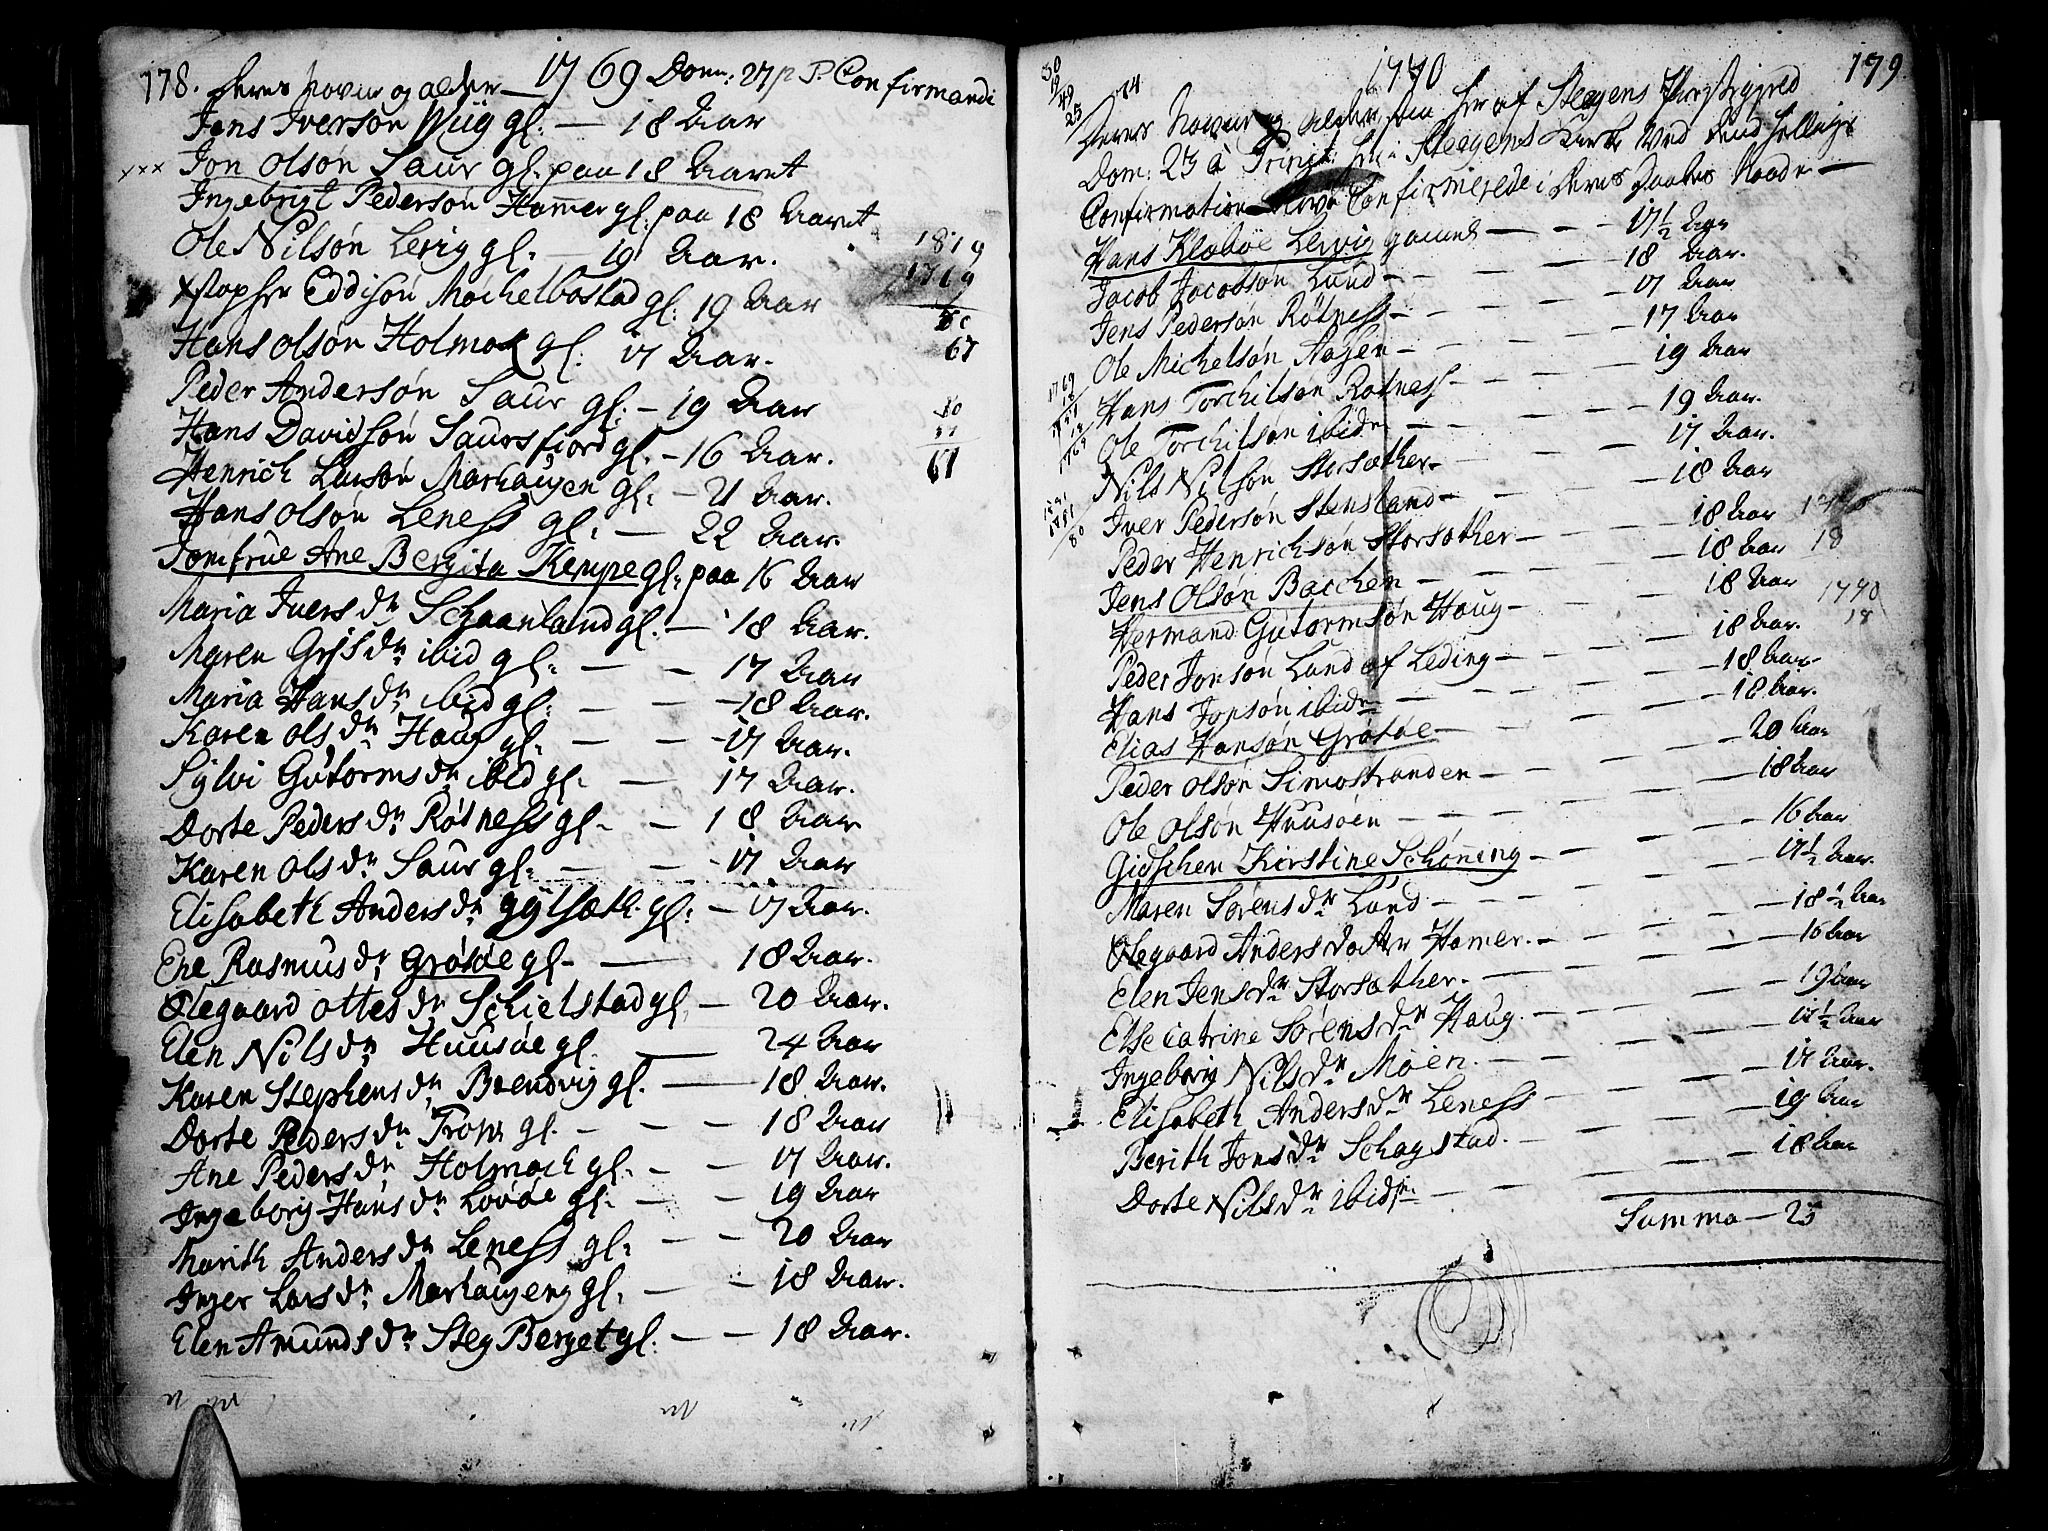 178. deres Navne og alder — 1769 Dom: 27 p T. Confirmandi
Jens Iversøn Wiig gl: — 18 Aar
xxx Jon Olsøn Saur gl. paa 18 Aaret
Ingebrigt Pedersøn Hamer gl: paa 18 Aaret
Ole Nilsøn Levig gl: — 19 Aar.
Xstopher Eddisøn Møchelbostad gl: 19 Aar
Hans Olsøn Holmok gl: 17 Aar.
Peder Andersøn Saur gl: — 19 Aar
Hans Davidsøn Saursfiord gl. — 16 Aar.
Henrich Larsøn Marhaugen gl: — 21 Aar.
Hans Olsøn Leness gl: — 22 Aar.
Jomfrue Ane Bergita Kempe gl: paa 16 Aar
Maria Ivers dr Schaanland gl: — 18 Aar.
Maren Grjs dr ibid gl: — — 17 Aar
Maria Hans dr ibid gl: — — 18 Aar.
Karen Ols dr Haug gl: — — 17 Aar.
Sylvi Gutorms dr ibid gl: — 17 Aar.
Dorte Peders dr Røtness gl. — 18 Aar
Karen Ols dr Saur gl: — — 17 Aar
Elisabeth Anders dr gylsæth. gl: — 17 Aar.
Ene Rasmus dr Grøtøe gl. — 18 Aar.
Olegaard Ottes dr Schielstad gl. — 20 Aar.
Elen Nils dr Huusøe gl. — 24 Aar
Karen Stephens dr Brendvig gl. — 18 Aar.
Dorte Peders dr Trop gl. — — — 18 Aar
Ane Peders dr Holmoch gl. — — 17 Aar.
Ingeborg Hans dr Lovøe gl. — — 19 Aar
Marith Anders dr Leness gl: — — 20 Aar
Inger Lars dr Marhaugeng gl. — — 18 Aar.
Elen Amunds dr Steg Berget gl: — — 18 Aar.
1819
1769
67
61
1770 179
Deres Navne og alder, som her af Stegens Præstegield
Dom: 23 à Trinit: her i Stegens Kirke ved dend hellige
Confirmation blev Confirmerede i deres Daabes Naade —
Hans Klæbøe Lervig gamel — — — 17 1/2 Aar
Jacob Jacobsøn Lund — — — 18 Aar.
Jens Pedersøn Røtness — — — 17 Aar
Ole Michelsøn Hagen — — — 17 Aar
Hans Torchilsøn Rotness — — — 19 Aar
Ole Torchilsøn ibidm — — — 19 Aar.
Nils Nilsøn Storsæther — — — 17 Aar.
Iver Pedersøn Stensland — — — 18 Aar
Peder Henrichsøn Storsæther — — — 18 Aar
Jens Olsøn Bacchen — — — 18 Aar
Hermand Gutormsøn Haug — — — 18 Aar
Peder Jonsøn Lund af Leding — — — 18 Aar.
Hans Jonsøn ibidm — — — 18 Aar.
Elias Hansøn Grøtøe — — — 18 Aar.
Peder Olsøn Simostranden — — — 20 Aar
Ole Olsøn Huusøen — — — 18 Aar
Gidschen Kirstine Schøning — — — 16 Aar
Maren Sørens dr Lund — — — 17 1/2 Aar.
Olegaard Anders datter Hamer. — — — 18 1/2 Aar
Elen Jens dr Storsæther. — — — 16 Aar
Else Catrine Sørens dr Haug. — — — 19 Aar
Ingeborg Nils dr Moen. — — — 17 1/2 Aar
Elisabeth Anders dr Leness — — — 17 Aar.
Berith Jons dr Schagstad. — — — 19 Aar
Dorte Nils dr ibidm. — — — 18 Aar
Summa — 25
1770
18
1770
18